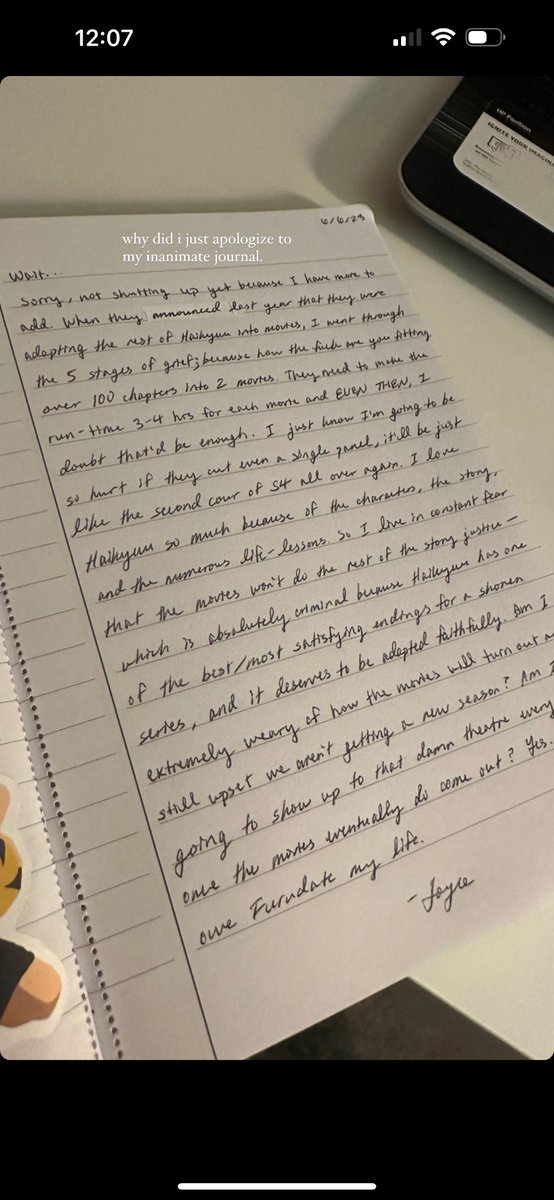 12:07
HP Pavilion
IGNITE YOUR IMAGINA
6/6/23
why did i just apologize to
my inanimate journal.
Wait...
Sorry, not shutting up yet because I have more to
add. When they announced last year that they were
adapting the rest of Haikyuu into movies, I went through
the 5 stages of grief; because how the fuck are you fitting
over 100 chapters into 2 movies. They need to make the
run-time 3-4 hrs for each movie and EVEN THEN, I
doubt that'd be enough. I just know I'm going to be
so hurt if they cut even a single panel, it'll be just
like the second cour of S4 all over again. I love
Haikyuu so much because of the characters, the story,
and the numerous life-lessons. So I live in constant fear
that the movies won't do the rest of the story justice-
which is absolutely criminal because Haikyuu has one
of the best/most satisfying endings for a shonen
series, and it deserves to be adapted faithfully. Am I
extremely weary of how the movies will turn out
still upset we aren't getting a new season? Am I
going to show up to that damn theatre every
once the movies eventually do come out? Yes.
owe Furudate my life.
- Joyce